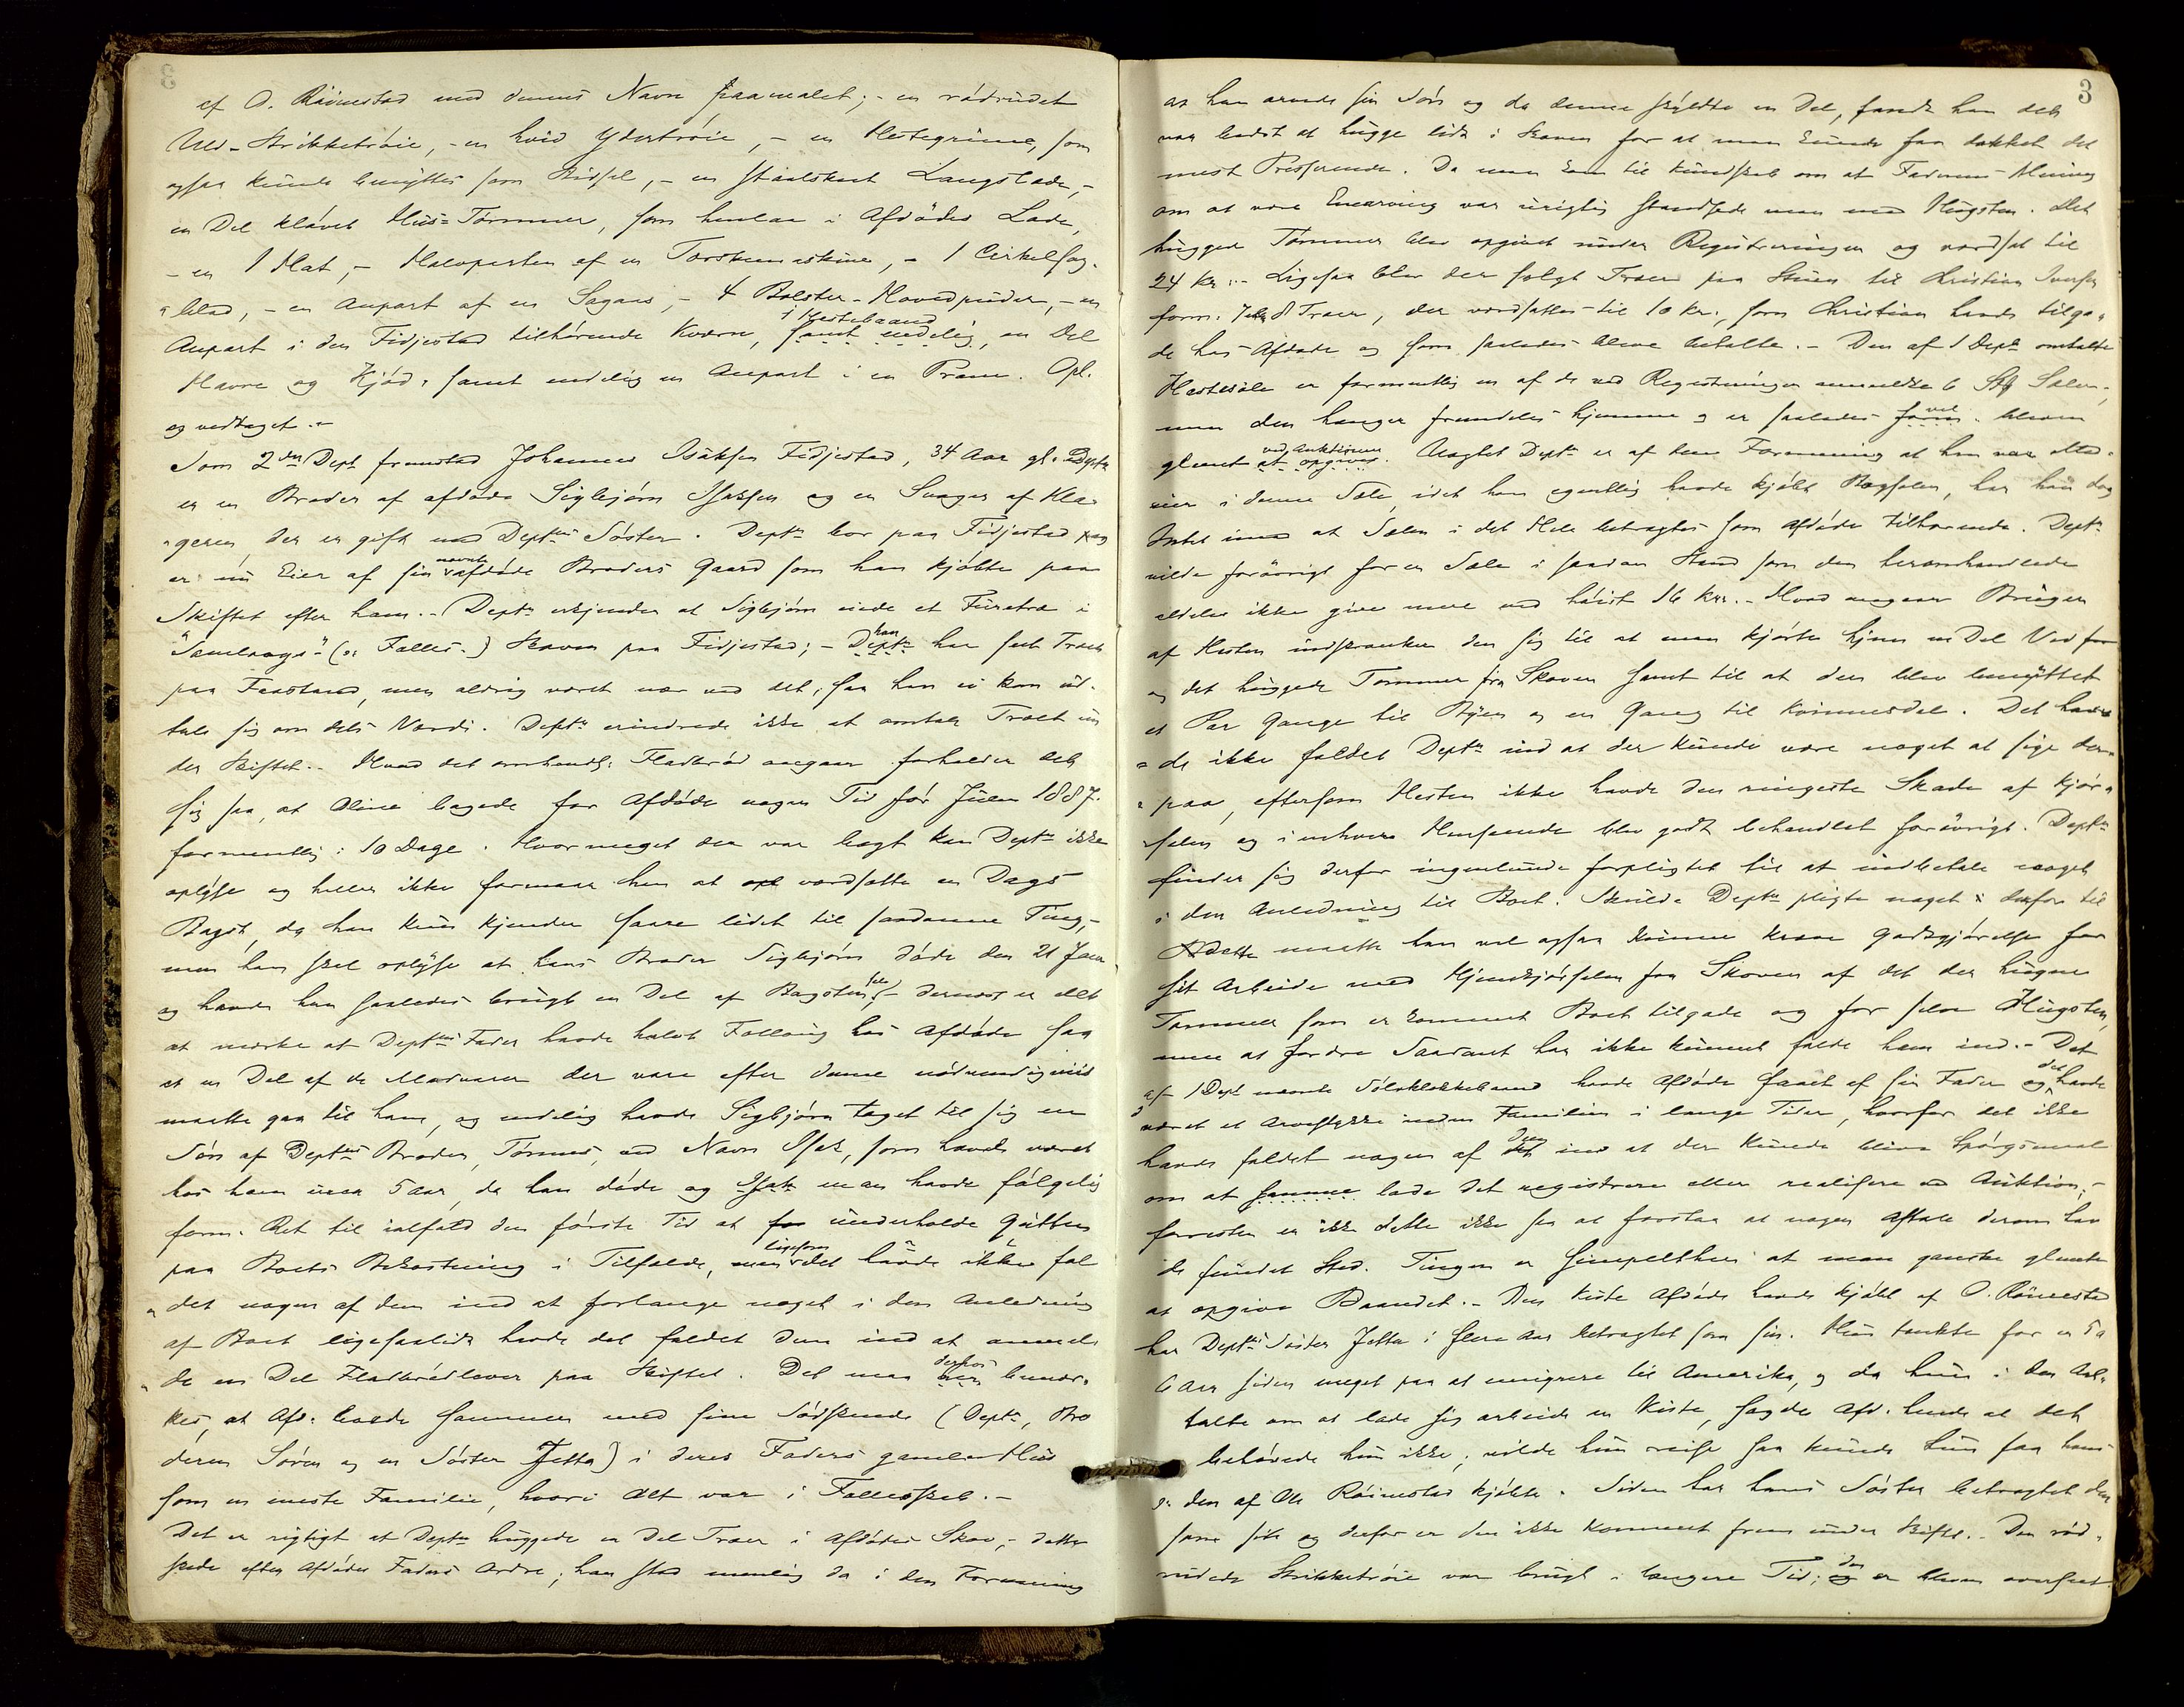 af O. Röinestad med dennes Navn paamalet; - en rödrudet
Uld-Strikketröie, - en hvid Ydertröie, - en Hestegrime, som
ogsaa kunde benyttes som Bidsel, - en staalskoet Langslæde, -
en Del klövet Hus-Tømmer, som henlaa i Afdödes Lade,
- en 1 Hat, - Halvparten af en Tærskemaskine, - 1 Cirkelsag-
"blad, - en Anpart af en Sagaas, - 4 Bolster-Hovedpuder, - en
Anpart i den Fidjestad tilhörende Kværn, 1 Hestebaand samt endelig, en Del
Havre og Kjöd, samt endelig en Anpart i en Pram. Opl.
og vedtaget.-
Som 2den Dept fremstod Johannes Isaksen Fidjestad, 34 Aar gl. Deptn
er en Broder af afdöde Sigbjörn Isaksen og en Svoger af Kla-
"geren, der er gift med Deptns Söster. Deptn bor paa Fidjestad og
er nu Eier af sin nævnte afdöde Broders Gaard som han kjöbte paa
Skiftet efter ham.- Deptn erkjender at Sigbjörn eiede et Furetræ i
"Samlaags" (ɔ: Fælles-) Skoven paa Fidjestad; - Deptn han har seet Træet
paa Frastand, men aldrig været nær ved det, saa han ei kan ud-
tale sig om dets Værdi. Deptn erindrede ikke at omtale Træet un
der Skiftet.- Hvad det omhandl. Fladbröd angaar forholder det
sig saa, at Oline bagede for Afdöde nogen Tid för Julen 1887.
formentlig i 10 Dage. Hvormeget der var bagt kan Deptn ikke
oplyse og heller ikke formaar han at opl værdsætte en Dags
Bagst, da han kun kjender saare lidet til saadanne Ting, -
men han skal oplyse at hans Broder Sigbjörn döde den 21 Jan
og havde han saaledes brugt en Del af Bagsten selv; - dernæst er det
at mærke at Deptns Fader havde halvt Følloug hos Afdöde saa
at en Del af de Madvarer der vare efter denne nödvendigviis
maatte gaa til ham, og endelig havde Sigbjörn taget til sig en
Sön af Deptns Broder, Tönnes, ved Navn Isak, som havde været
hos ham circa 5 Aar, da han döde og Isak man havde fölgelig
form. Ret til ialfald den förste Tid at for underholde Gutten
paa Boets Bekostning i Tilfælde, men ligesom det havde ikke fal
"det nogen af dem ind at forlange noget i den Anledning
af Boet ligesaalidt havde det faldet dem ind at anmel-
"de en Del Fladbrödlever paa Skiftet. Det maa her derhos bemær-
kes, at Afd. levede sammen med sine Södskende (Deptn, Bro
deren Sören og en Söster Jetta) i deres Faders gamle Hus
som en eneste Familie, hvori Alt var i Fællesskab.-
Det er rigtigt at Deptn huggede en Del Træer i Afdödes Skov, - dette
skede efter Afdödes Faders Ordre; han stod nemlig da i den Formening
3
at han arvede sin Sön og da denne skyldte en Del, fandt han det
var bedst at hugge lidt i Skoven for at man kunde faa dækket det
mest Presserende. Da man kom til Kundskab om at Faderens Mening
om at være Enearving var urigtig standsede man med Hugsten. Det
huggede Tømmer blev opgivet under Registreringen og værdsat til
24 Kr.- Ligesaa blev der solgt Træer paa Stuen til Christian Iversen
form. 7 eller 8 Træer, der værdsattes til 10 Kr., som Christian havde tilgo-
de hos Afdöde og som saaledes bleve betalte.- Den af 1 Dept omtalte
Hestesele er formentlig en af de ved Registreringen anmeldte 6 Stk Seler,
men den hænger fremdeles hjemme og er saaledes form. vel bleven
glemt at opgives ved Auktionen. Uagtet Deptn er af den Formening at han var Med-
eier i denne Sele, idet han egentlig havde kjöbt Bogselen, har han dog
Intet imod at Selen i det Hele betragtes som Afdöde tilhørende. Deptn
vilde forövrigt for en Sele i saadan Stand som den heromhandlede
aldeles ikke give mere end höist 16 Kr.- Hvad angaar Brugen
af Hesten indskrænker den sig til at man kjörte hjem en Del Ved for
og det huggede Tømmer fra Skoven samt til at den blev benyttet
et Par Gange til Byen og en Gang til Kvinnesdal. Det hav
=de ikke faldet Deptn ind at der kunde være noget at sige der-
"paa, eftersom Hesten ikke havde den ringeste Skade af Kjör-
"selen og i enhver Henseende blev godt behandlet forövrigt. Deptn
finder sig derfor ingenlunde forpligtet til at indbetale noget
i den Anledning til Boet. Skulde Deptn pligte noget i derfor til
dette maatte han vel ogsaa kunne kræve Godtgjörelse for
sit Arbeide med Hjemkjörselen fra Skoven af det der hugne
Tømmer som er kommet Boet tilgode og for selve Hugsten,
men at fordre Saadant har ikke kunnet falde ham ind.- Det
af 1 Dept nævnte Sölvklokkebaand havde Afdöde faaet af sin Fader og det havde
været et Arvestykke inden Familien i lange Tider, hvorfor det ikke
havde faldet nogen af det dem ind at der kunde blive Spörgsmaal
om at samme lade det registrere eller realisere ved Auktion; -
forresten er ikke dette ikke saa at forstaa at nogen Aftale derom hav
de fundet Sted. Tingen er simpelthen at man ganske glemte
at opgive Baandet.- Den Kiste Afdöde havde kjöbt af O. Röinestad
har Deptns Söster Jetta i flere Aar betragtet som sin. Hun tænkte for en 5 a
6 Aar siden meget paa at emigrere til Amerika, og da hun i den Anl.
talte om at lade sig arbeide en Kiste, sagde Afd. hende at det
behövede hun ikke; vilde hun reise saa kunde hun faa hans
ɔ: den af Ole Röinestad kjöbte. Siden har hans Söster betragtet den
som sit og derfor er den ikke kommet frem under Skiftet.- Den röd-
rudede Strikketröie var brugt i længere Tid; og den er bleven overseet